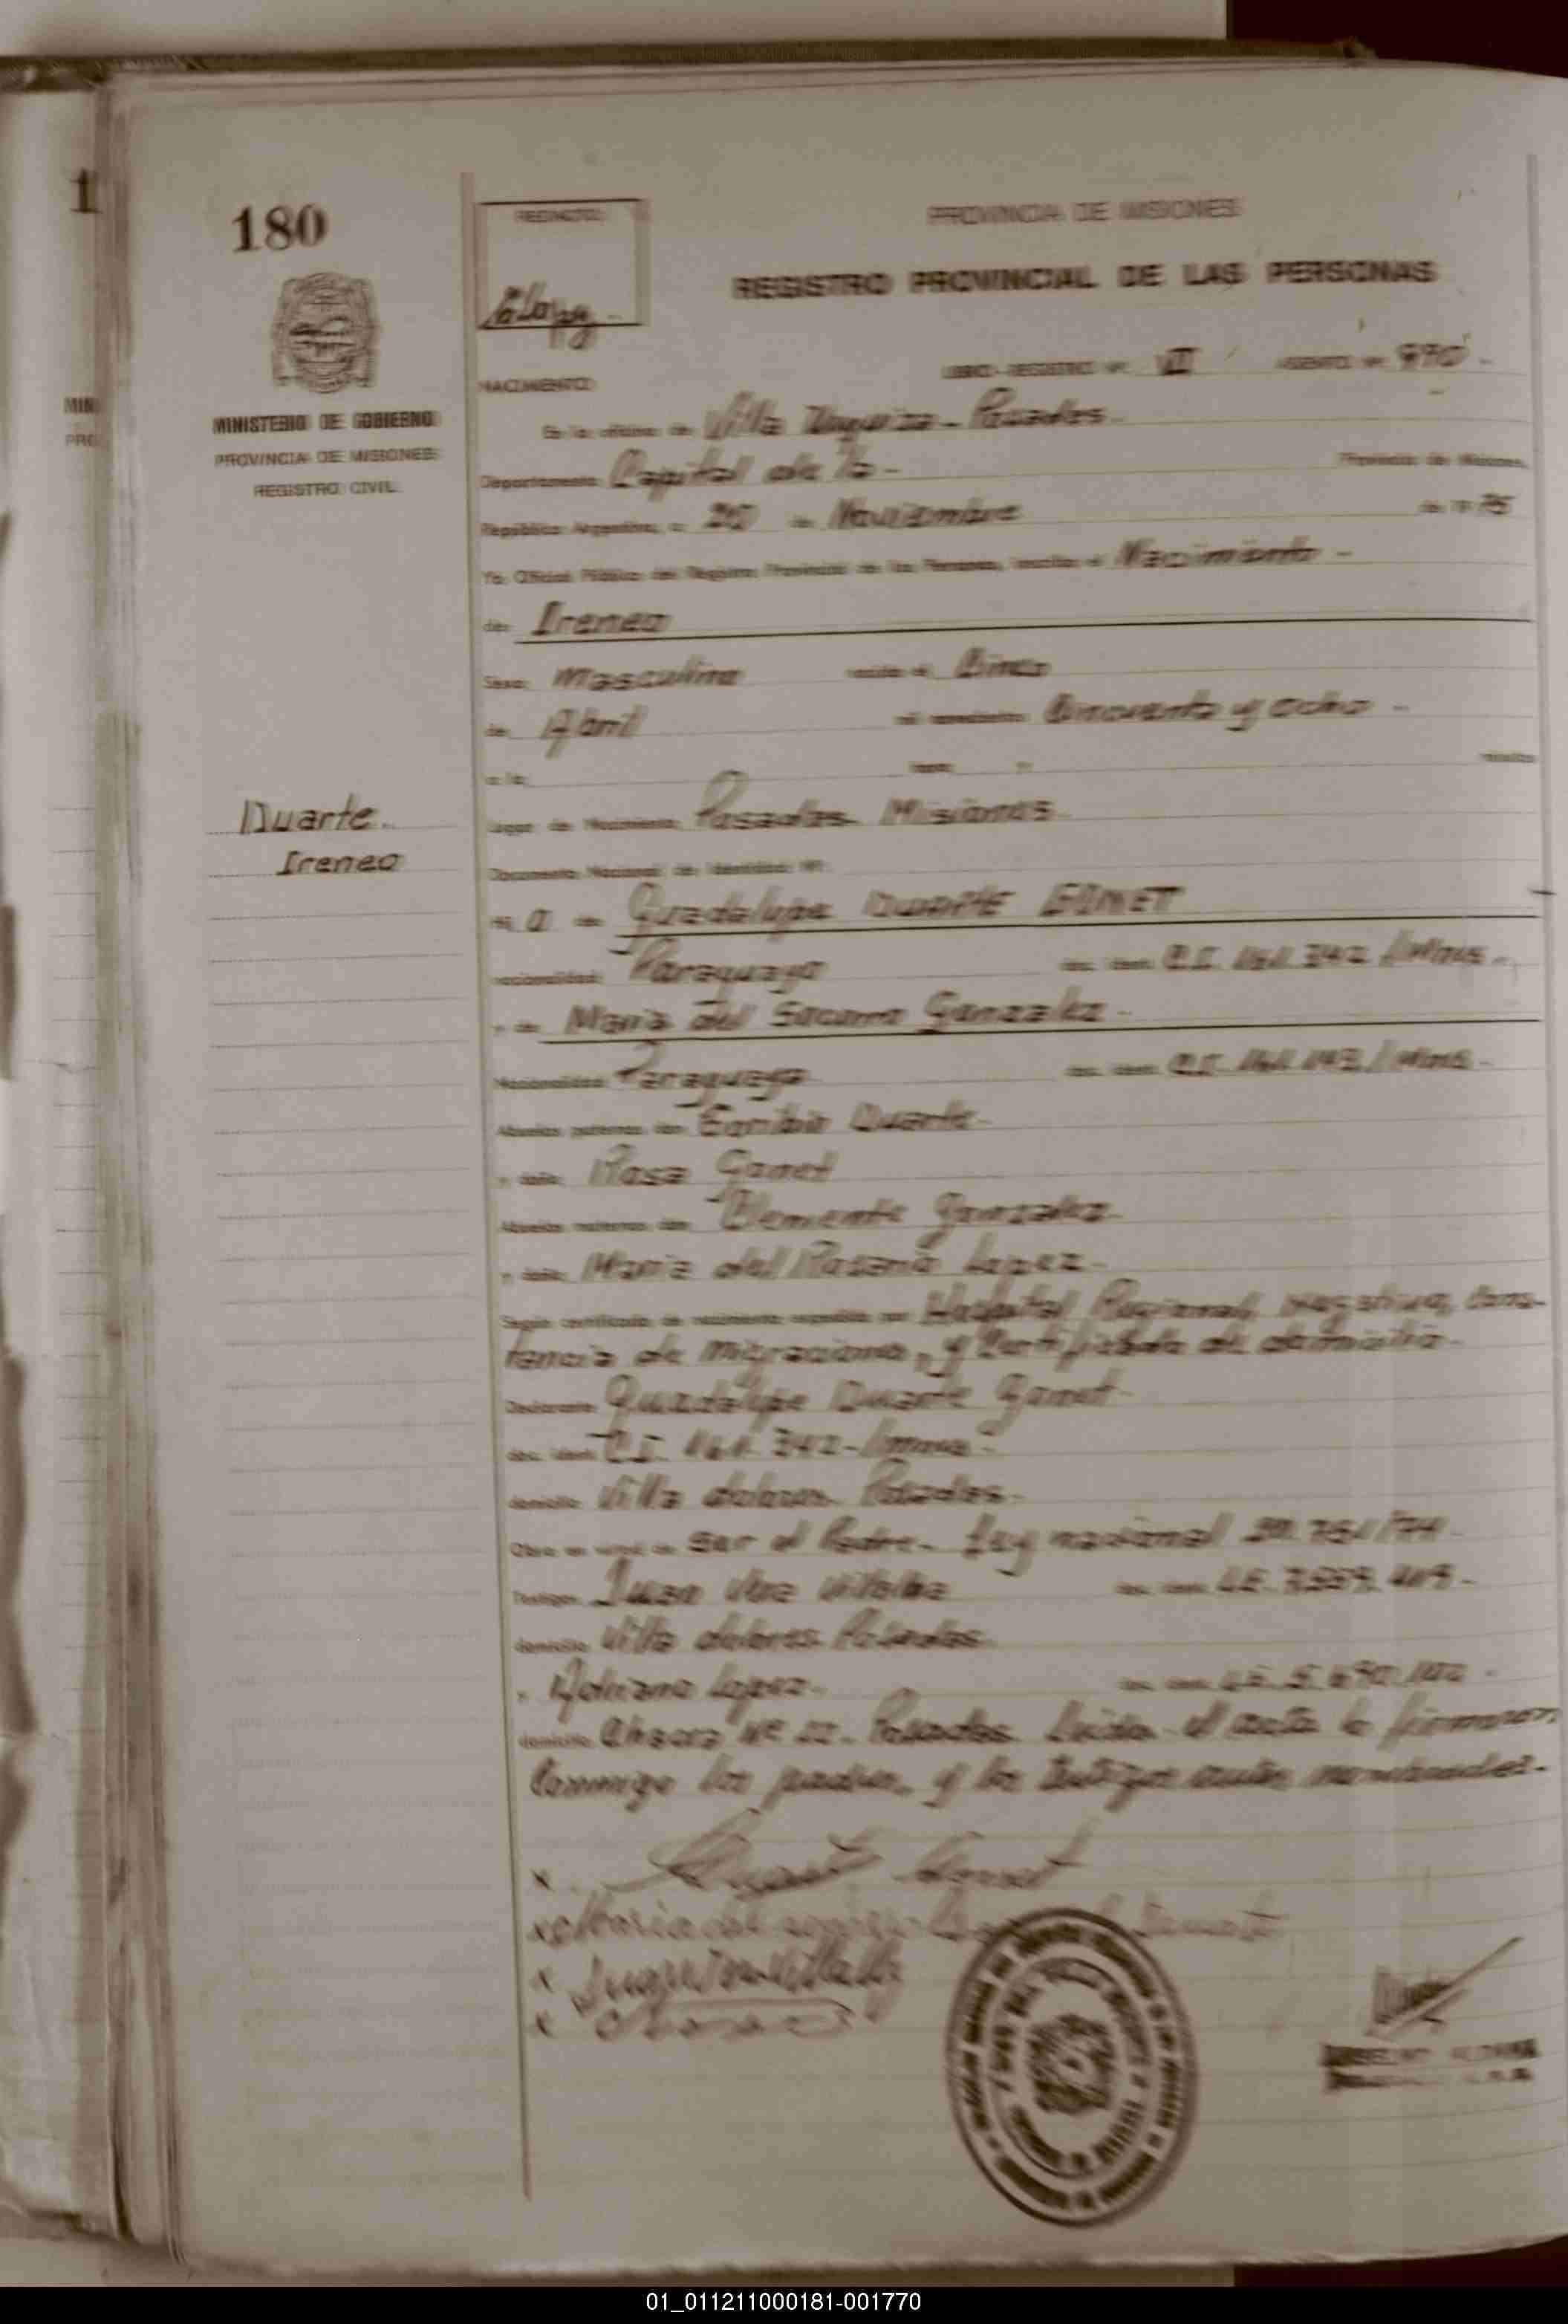 1
180
MINISTERIO DE GOBIERNO
PROVINCIA DE MISIONES
REGISTRO CIVIL
MIN
PRO
Duarte.
Ireneo
PROVINCIA DE MISIONES
REGISTRO PROVINCIAL DE LAS PERSONAS
LIBRO - REGISTRO Nº VII ASIENTO Nº 970 -
NACIMIENTO
En la oficina de Villa Urquiza - Posadas -
Departamento Capital de la - Provincia de Misiones,
República Argentina, a 20 de Noviembre de 19 75
Yo Oficial Público del Registro Provincial de las Personas, inscribo el Nacimiento -
de Ireneo
Sexo Masculino nacido el Cinco
de Abril mil novecientos Cincuenta y ocho -
a la hora y minutos
Lugar de Nacimiento Posadas Misiones.
Documento Nacional de Identidad Nº
Hij o de Guadalupe DUARTE GONET
nacionalidad Paraguaya doc. ident. C.I. 161.342 /Mnes -
y de Maria del Socorro Gonzalez -
Nacionalidad Paraguaya doc. ident. C.I. 161.143 / Mnes -
Abuelos paternos don Duarte -
y doña Rosa Gonet
Abuelos maternos don Clemente Gonzalez -
y doña Maria del Rosario Lopez -
Según certificado de nacimiento expedido por Hospital Regional, negativa, Cons-
tancia de Migraciones, y Certificado de domicilio -
Declarante Guadalupe Duarte Gonet -
doc. ident. C.I. 161.342 - /Mnes -
domicilio Villa dolores Posadas -
Obra en virtud de Ser el Padre - Ley nacional 20.751/74
Testigos Juan Vera Villalba doc. ident. L.E. 7.559.409 -
domicilio Villa dolores Posadas.
y Adriano Lopez - doc. ident. L.E. 5.690.102 -
domicilio Chacra Nº 22 - Posadas Leida el acta la firman
Conmigo los padres, y los testigos antes nombrados -
01_011211000181-001770